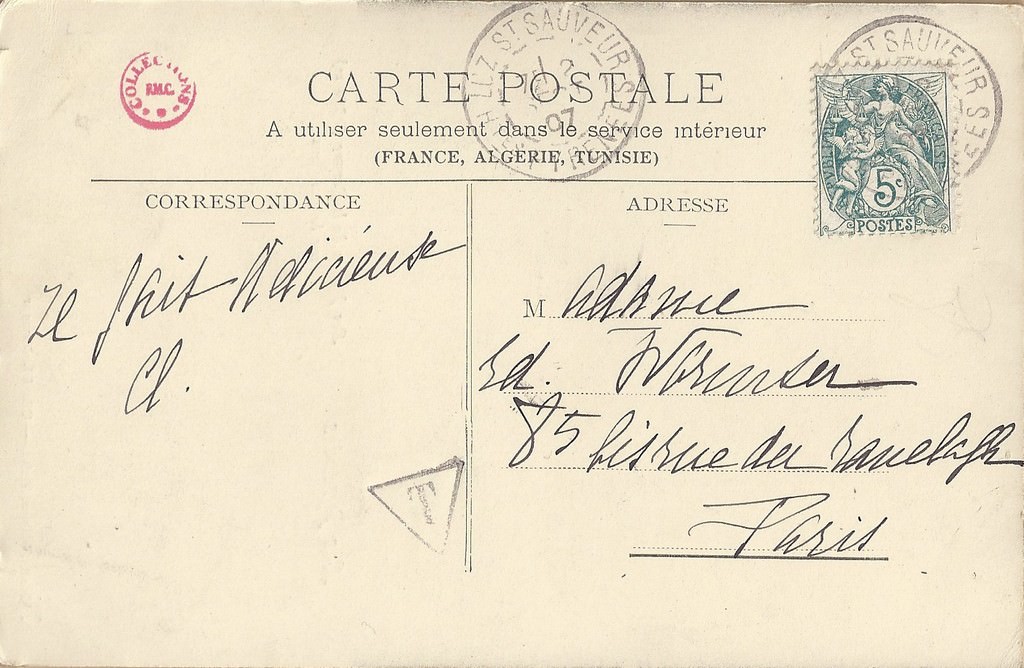 COLLECTIONS
P.M.C.
LUZ-ST SAUVEUR
07
HTES PYRENEES
ST SAUVEUR
CARTE POSTALE
A utiliser seulement dans le service intérieur
(FRANCE, ALGÉRIE, TUNISIE)
5c
POSTES
CORRESPONDANCE
ADRESSE
fait délicieuse
Cl.
Madame
Ed. Wormser
85 bis rue du Ranelagh
Paris
T